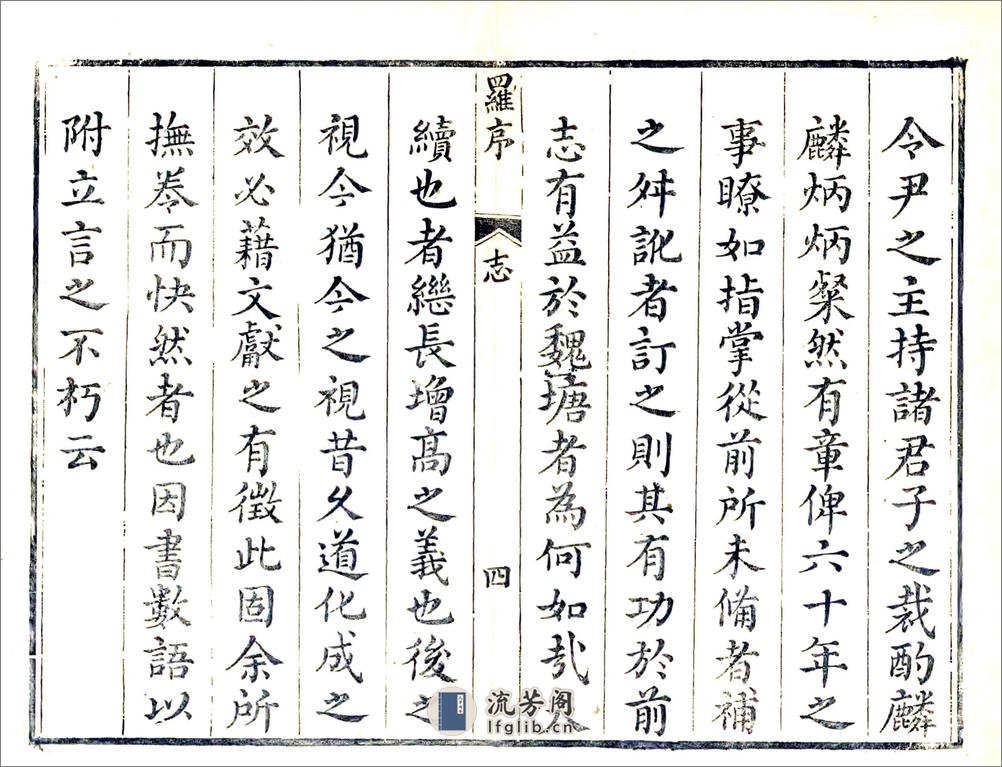 令尹之主持諸君子之裁酌麟
麟炳炳粲然有章俾六十年之
事瞭如指掌從前所未備者補
之舛訛者訂之則其有功於前
志有益於魏塘者為何如哉
羅序 志 四
續也者繼長增高之義也後之
視今猶今之視昔久道化成之
效必藉文獻之有徵此固余所
撫卷而快然者也因書數語以
附立言之不朽云
流芳阁
lfglib.cn